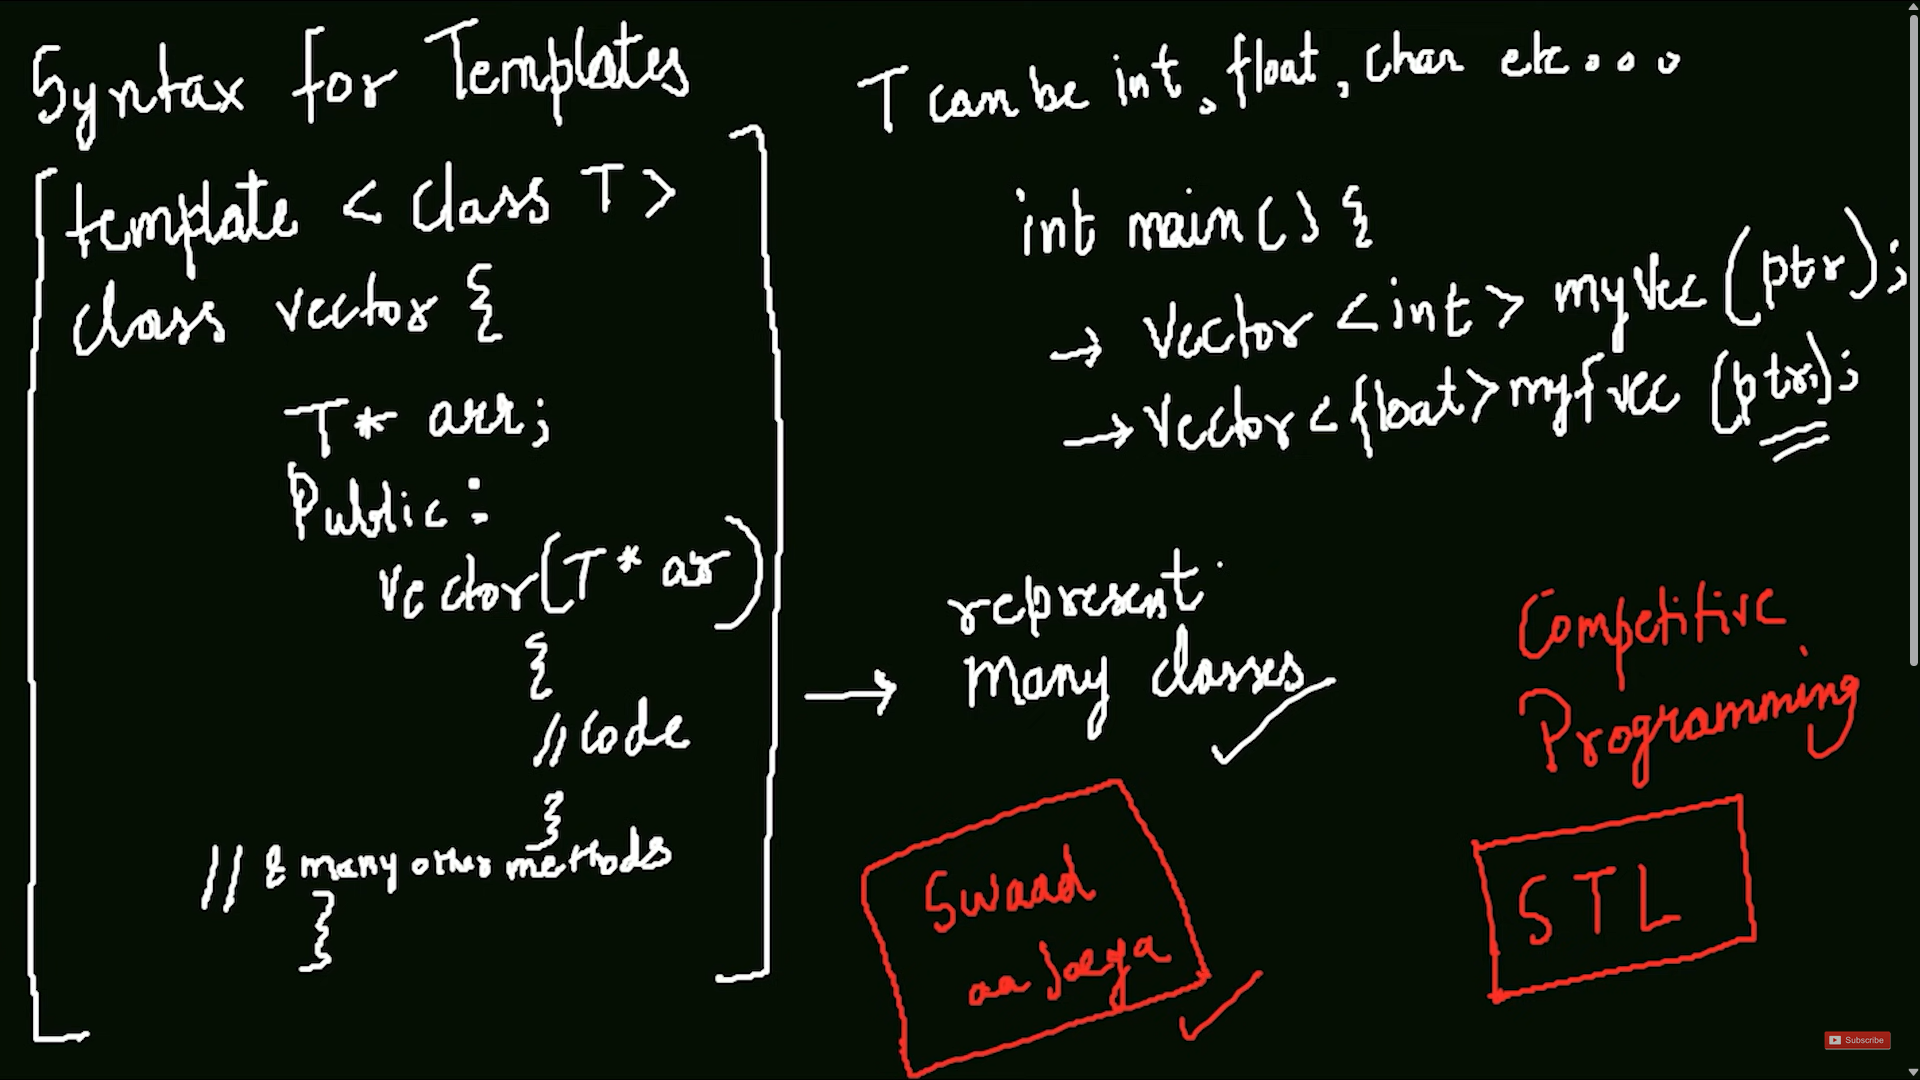 Syntax for Templates
template < class T >
class vector {
T* arr;
Public :
vector(T* ar)
{
// code
}
// & many other methods
}
T can be int, float, char etc...
int main() {
→ vector <int> myvec (ptr);
→ vector <float> myfvec (ptr);
→ represent
many classes
Competitive
Programming
Swaad
aa Jaega
STL
Subscribe